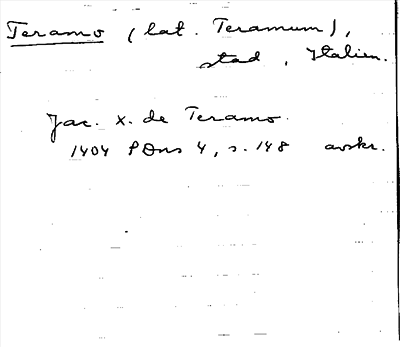 Teramo (lat. Teramum),
stad, Italien.
Jac. x. de Teramo.
1404 POns 4, s. 148 avskr.